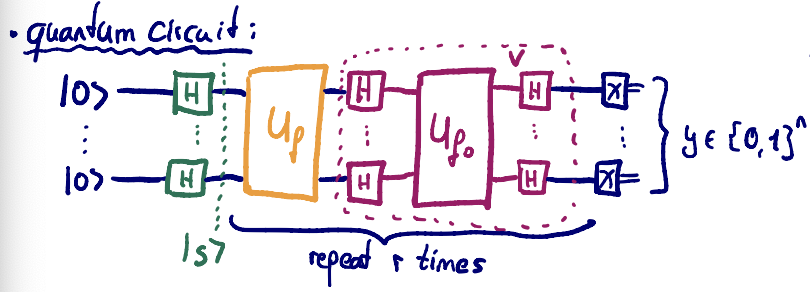 • quantum circuit:
|0> H U_f H U_f₀ V H X
⋮ ⋮ ⋮ ⋮ ⋮ y ∈ {0,1}ⁿ
|0> H H H X
|s>
repeat r times